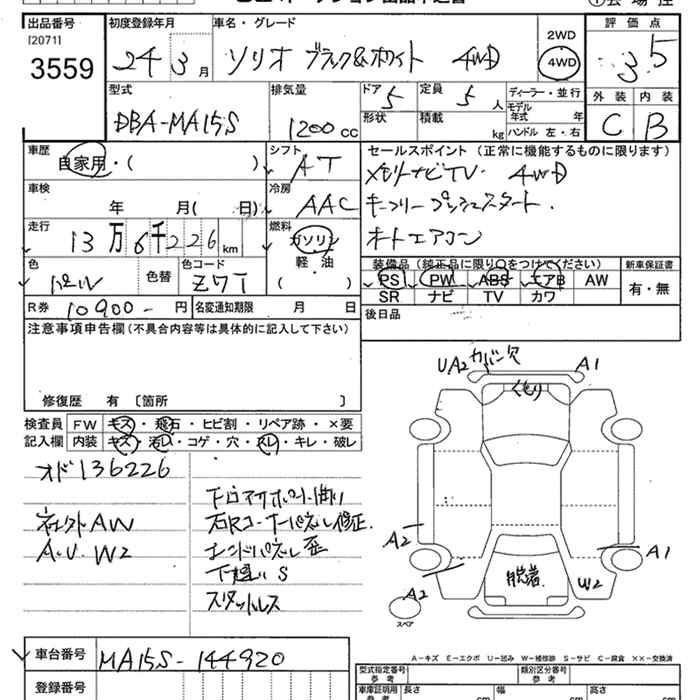 出品番号 初度登録年月 車名・グレード 評価点
[2071]
3559
24 3月 ソリオ ブラック&ホワイト 4WD 2WD 4WD 3.5
型式 排気量 ドア 定員 ディーラー・並行 外装 内装
DBA-MA15S 1200cc 5 5人 モデル年式 年 C B
形状 積載 kg ハンドル 左・右
車歴 シフト セールスポイント (正常に機能するものに限ります)
自家用・( ) AT メモリーナビTV. 4WD
車検 冷房 キーフリープッシュスタート.
年 月( 日) AAC オートエアコン
走行 燃料
13万6千226km ガソリン 軽・油 ( )
色 色替 色コード 装備品 (純正品に限り○をつけてください) 新車保証書
パール ZVT PS PW ABS エアB AW 有・無
SR ナビ TV カワ
R券 10900-円 名変通知期限 月 日 後日品
注意事項申告欄(不具合内容等は具体的に記入して下さい)
修復歴 有 〔箇所 〕
検査員 FW キズ・飛石・ヒビ割・リペア跡・×要
記入欄 内装 キズ・汚レ・コゲ・穴・スレ・キレ・破レ
オド136226
下回りサポート曲り
AW
右Rコーナーパネル修正.
A.U.W2
エンドパネル歪
S
スタットレス
UA2 カバー欠 A1
くもり
A2 A1
脱着 W2
A2
スペア
A-キズ E-エクボ U-凹み W-補修跡 S-サビ C-腐食 ××-交換済
車台番号 MA15S-144920
型式指定番号 参考 類別区分番号 参考
登録番号
車庫証明用 参考 長さ cm 幅 cm 高さ cm